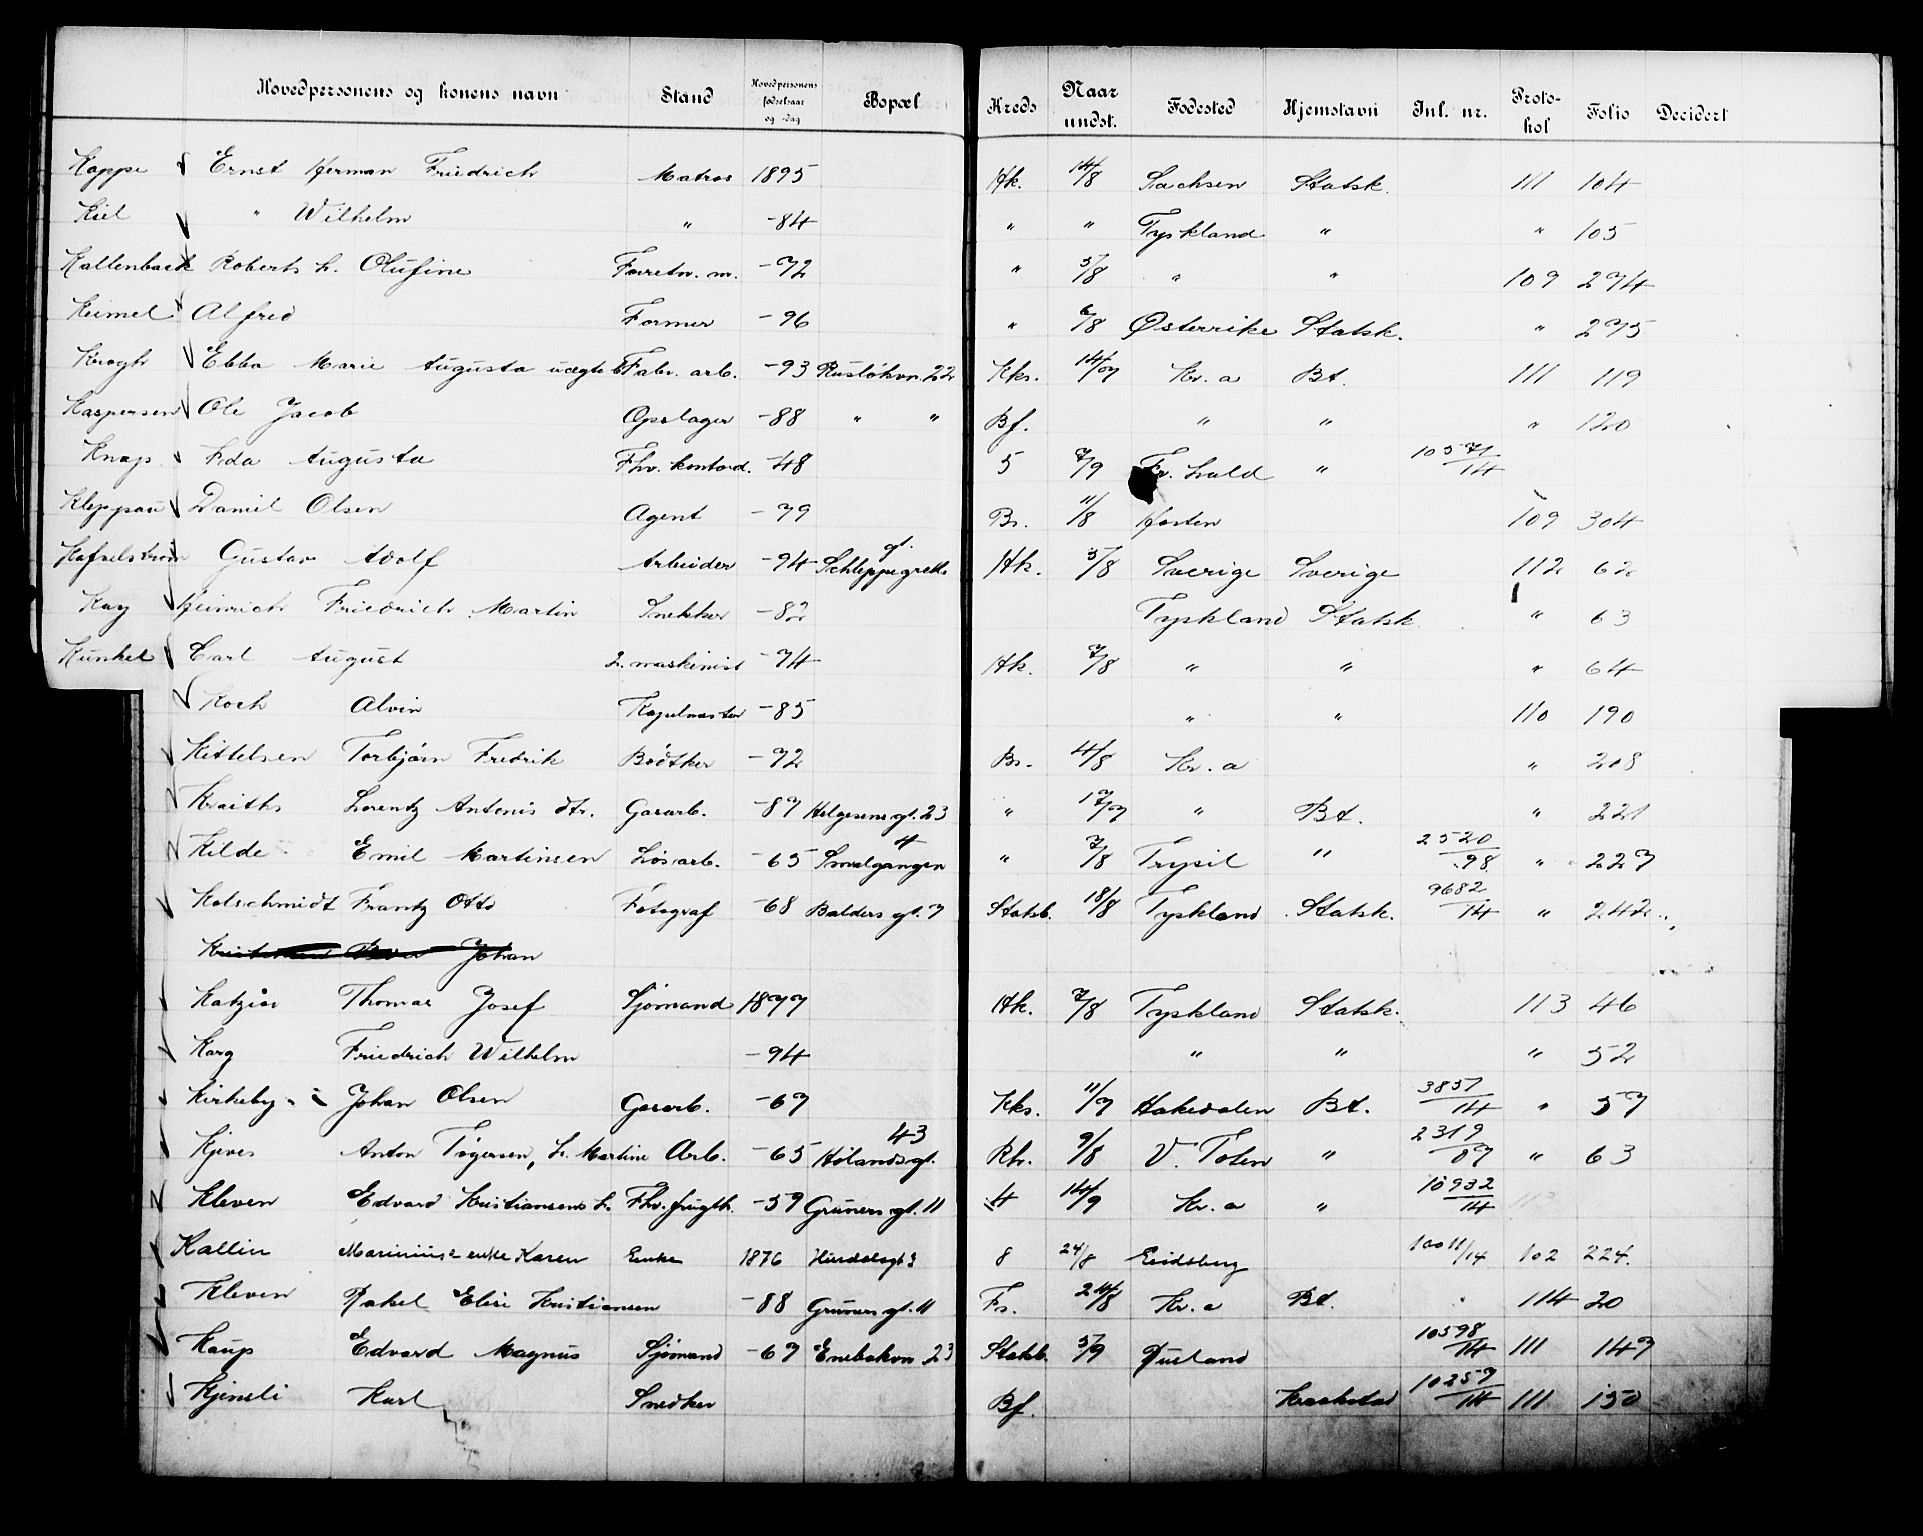 Hovedpersonens og konens navn Stand Hovedpersonens fødselsaar og -dag Bopæl Kreds Naar undst. Fødested Hjemstavn Jnl. nr. Protokol Folio Decidert
Kappe Ernst Herman Friedrich Matros 1895 Hk. 14/8 Sachsen Statsk. 111 104
Kiel " Wilhelm " -84 " " Tyskland " " 105
Kallenback Roberts h. Olufine Forretn. m. -72 " 5/8 " " 109 274
Keimel Alfred Former -96 " 6/8 Østerrike Statsk. " 275
Krogh Ebba Marie Augusta uægte b Fabr. arb. -93 Rusløkvn. 22 Kks. 14/7 Kr.a Bt. 111 119
Kaspersen Ole Jacob Opslager -88 " " Bf. " " " 120
Knap Ida Augusta Fhv. kontord. -48 5 7/9 Fr.hald " 10571/14
Kleppau Daniel Olsen Agent -79 Br. 11/8 Horten 109 304
Gustav Adolf Arbeider -94 Schleppegrells gt. Hk. 5/8 Sverige Sverige 112 62
Kay Heinrich Friedrich Martin Snekker -82 Tyskland Statsk. " 63
Kunkel Carl August 2. maskinist -74 Hk. 7/8 " " " 64
Koch Alvin Kapelmester -85 " " 110 190
Kittelsen Torbjørn Fredrik Bødtker -72 Br. 4/8 Kr.a " 208
Lorentz Antonis dtr. Gasarb. -87 Helgesens gt. 23 " 17/7 " Bt. " 221
Kilde Emil Martinsen Løsarb. -65 Smalgangen 4 " 7/8 Trysil " 2520/98 " 227
Kolschmidt Frantz Otto Fotograf -68 Balders gt. 7 Statsb. 18/8 Tyskland Statsk. 9682/14 " 242
Johan
Thomas Josef Sjømand 1877 Hk. 7/8 Tyskland Statsk. 113 46
Karg Friedrich Wilhelm -94 " " " 52
Kirkeby Johan Olsen Gasarb. -67 Kks. 11/7 Hakedalen Bt. 3857/14 " 57
Anton Tøgersen, h. Martine Arb. -65 Hølandsgt. 43 Rh. 9/8 V. Toten " 2319/07 " 63
Kleven Edvard Kristiansens h. Fhv. frugth. -59 Gruners gt. 11 4 14/9 Kr.a " 10932/14 113
Kallin Marinius's enke Karen Enke 1876 Hurdalsgt 3 8 24/8 Eidsberg 10011/14 102 224.
Kleven Rakel Elise Kristiansen -88 Gruners gt. 11 Fs. 24/8 Kr.a Bt. 114 20
Kaup Edvard Magnus Sjømand -67 Enebakvn. 23 Statsb. 5/9 Rusland 10598/14 111 147
Kjensli Karl Snedker Bf. Kraakstad 10257/14 111 150